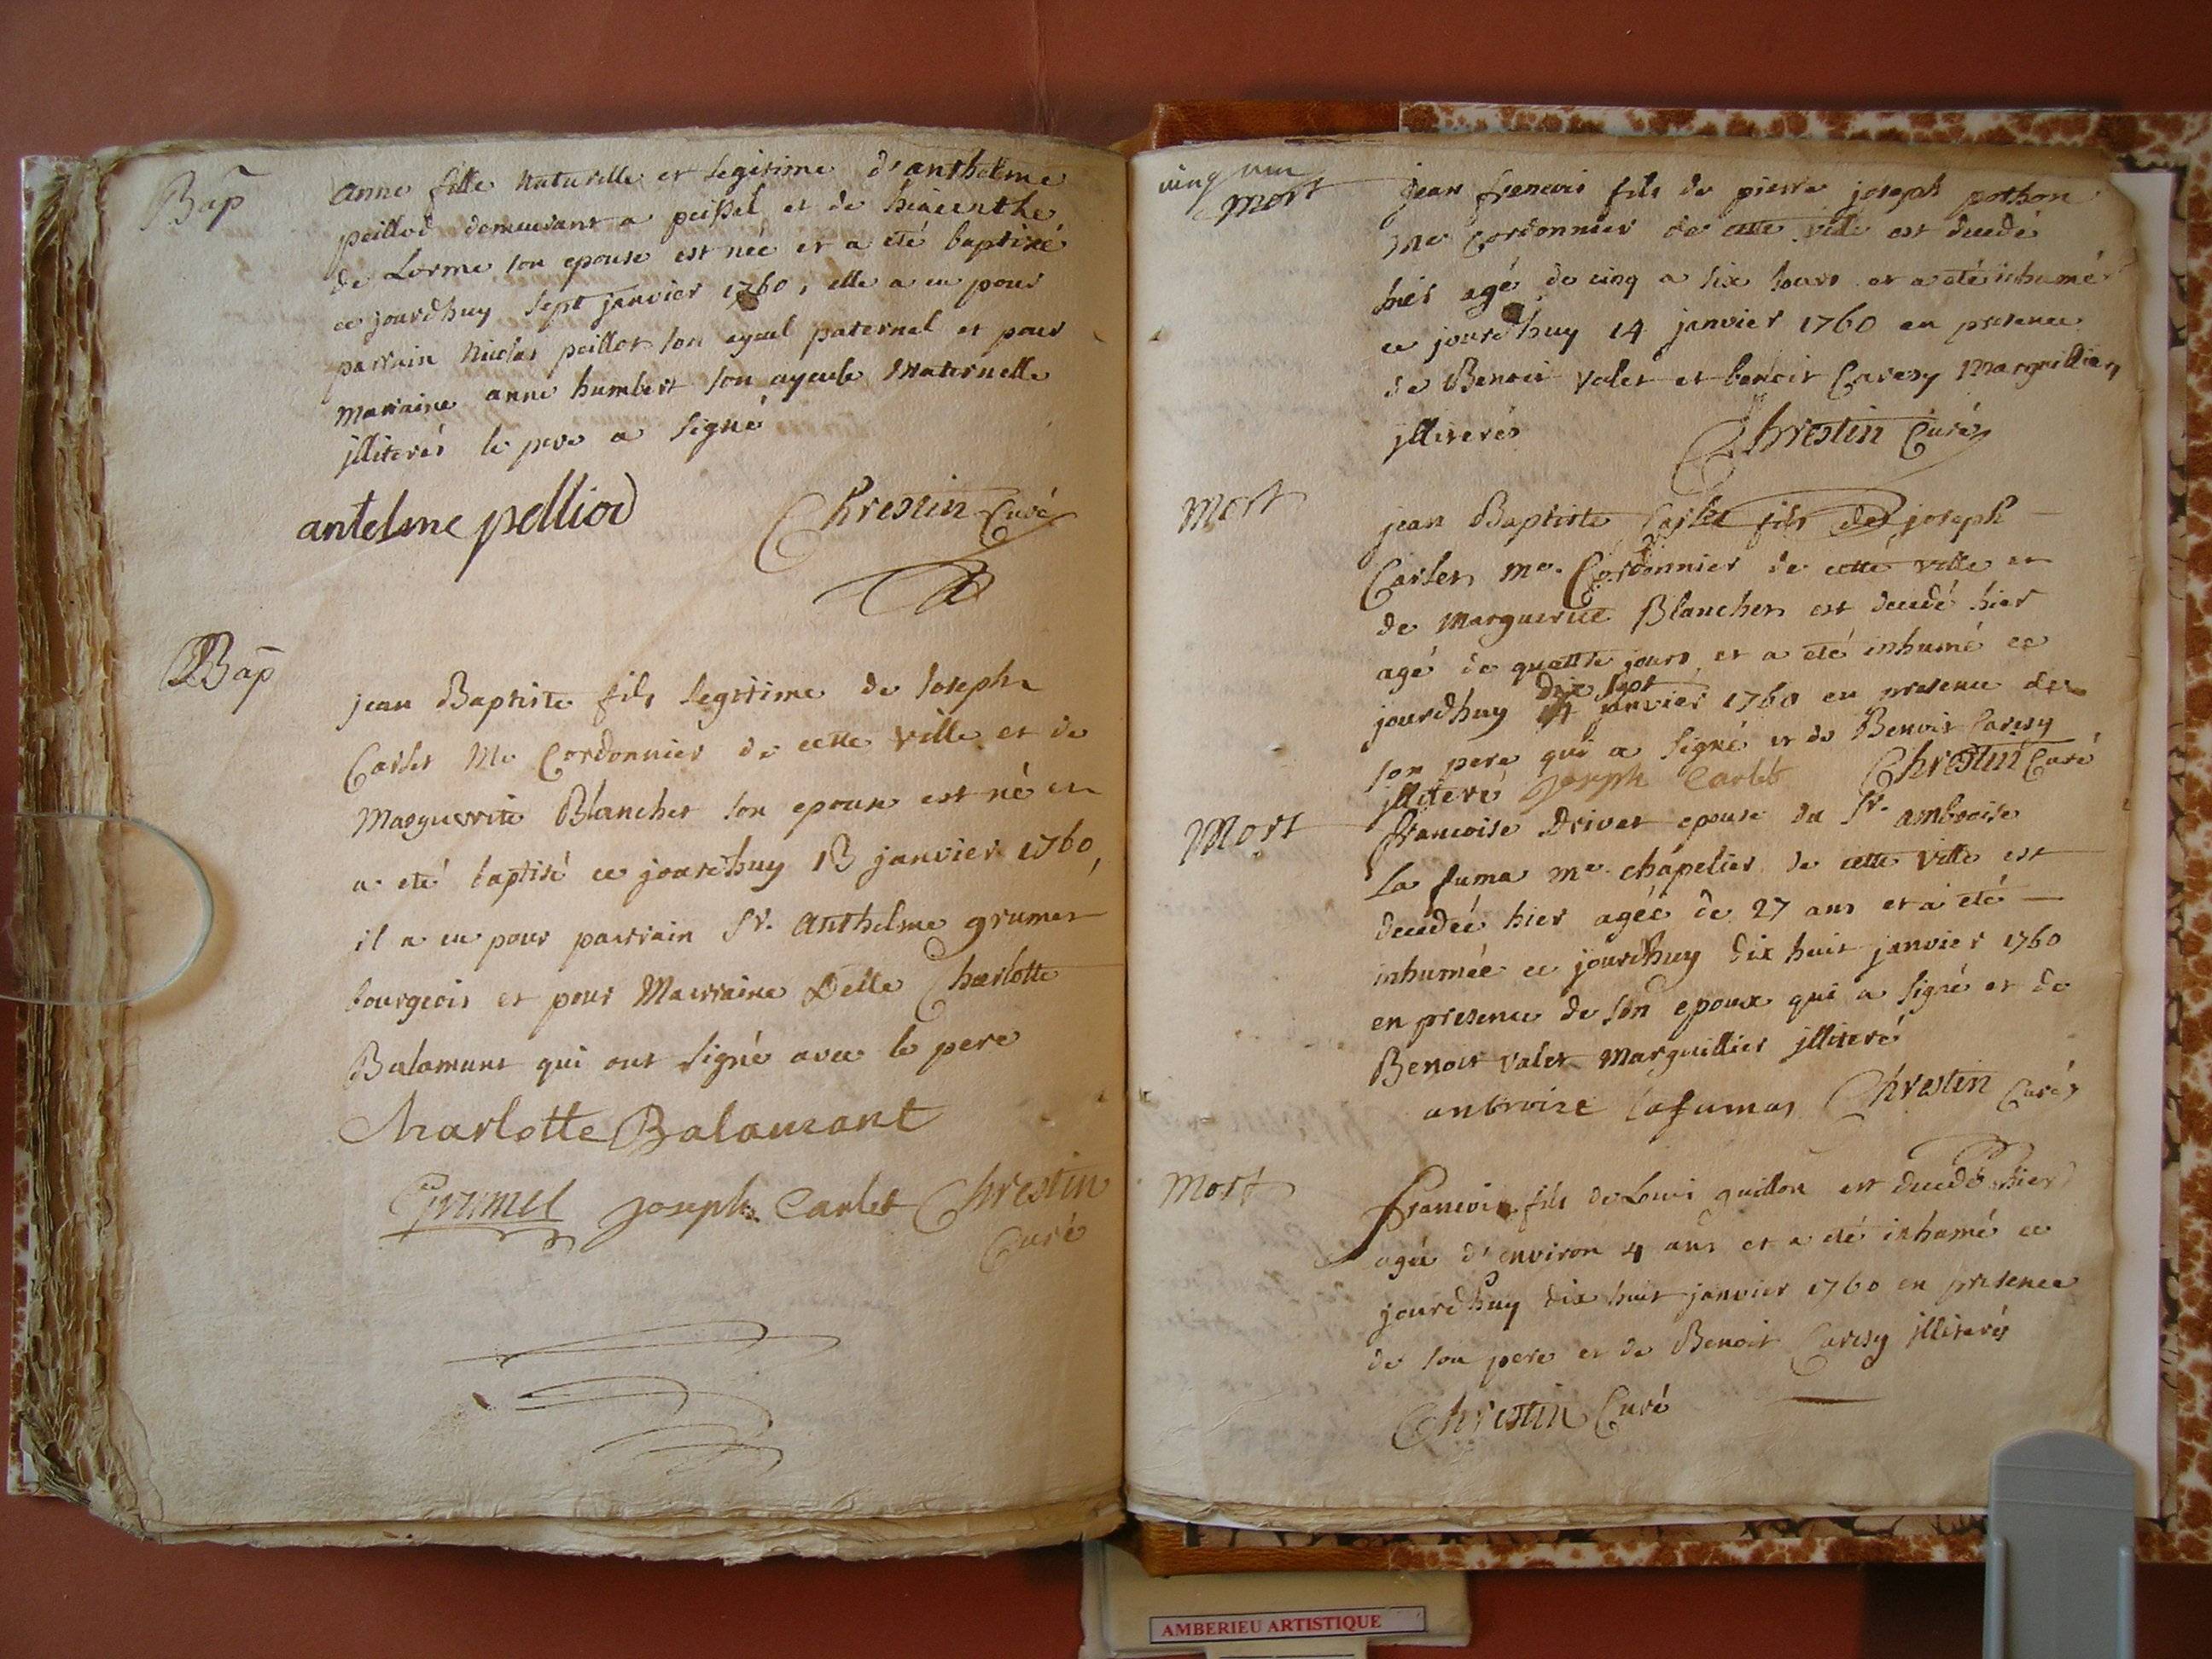 Bap
anne fille naturelle et legitime d'anthelme
peillod demeurant a peissel et de hiacinthe
de Lorme son epouse est née et a eté baptisé
ce jourdhuy sept janvier 1760, elle a eu pour
parrain nicolas peillot son ayeul paternel et pour
marraine anne humbert son ayeule maternelle
jlliterés le pere a signé
antelme pelliod Chrestin Curé
Bap
jean Baptiste fils legitime de Joseph
Carlet Me Cordonnier de cette ville et de
Marguerite Blanchet son epouse est né et
a eté baptisé ce jourdhuy 13 janvier 1760,
il a eu pour parrain Sr. anthelme grumet
bourgeois et pour Marraine Delle Charlotte
Balamant qui ont signé avec le pere
Charlotte Balamant
Grumet Joseph Carlet Chrestin
Curé
cinq
mort
jean francois fils de pierre joseph pothon
Me Cordonnier de cette ville est decedé
hier agé de cinq a six jours et a eté inhumé
ce jourdhuy 14 janvier 1760 en presence
de Benoit valet et benoit Caresy Marguilliers
jlliterés Chrestin Curé
Mort
jean Baptiste Carlet fils de joseph
Carlet me. Cordonnier de cette ville et
de Marguerite Blanchet est decedé hier
agé de quattre jours et a eté inhumé ce
jourdhuy dix sept janvier 1760 en presence de
son pere qui a signé et de Benoit Caresy
jlliteré Joseph Carlet Chrestin Curé
Mort
francoise Drivet epouse du Sr. ambroise
La fuma me. chapelier de cette ville est
decedée hier agée de 27 ans et a eté
inhumée ce jourdhuy dix huit janvier 1760
en presence de son epoux qui a signé et de
Benoit valet Marguillier jlliteré
anbroize lafumas Chrestin Curé
Mort
francois fils de Louis guillon est decedé hier
agé d'environ 4 ans et a eté inhumé ce
jourdhuy dix huit janvier 1760 en presence
de son pere et de Benoit Caresy jlliterés
Chrestin Curé
AMBERIEU ARTISTIQUE